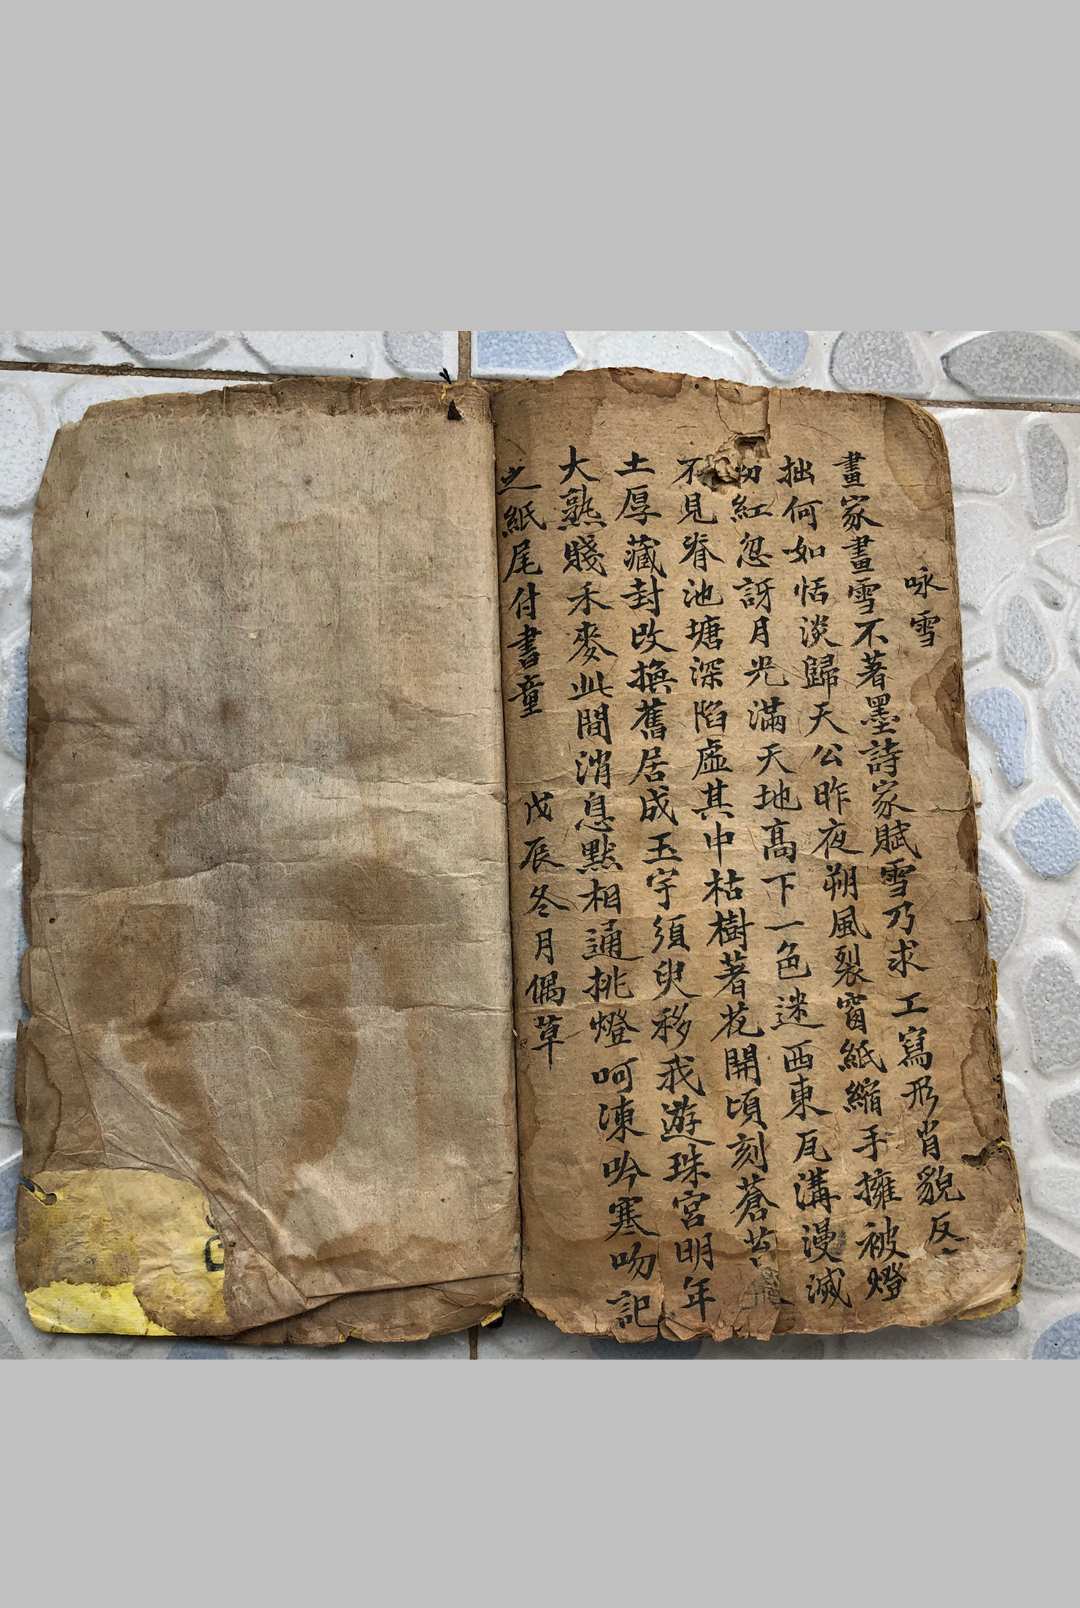 咏雪
畫家畫雪不著墨詩家賦雪乃求工寫形肖貌反
拙何如恬淡歸天公昨夜朔風裂窗紙縮手擁被燈
紅忽訝月光滿天地高下一色迷西東瓦溝漫滅
不見脊池塘深陷虛其中枯樹著花開頃刻蒼
土厚藏封改換舊居成玉宇須臾移我遊珠宮明年
大熟賤禾麥此間消息默相通挑燈呵凍吟寒吻記
之紙尾付書童 戊辰冬月偶草